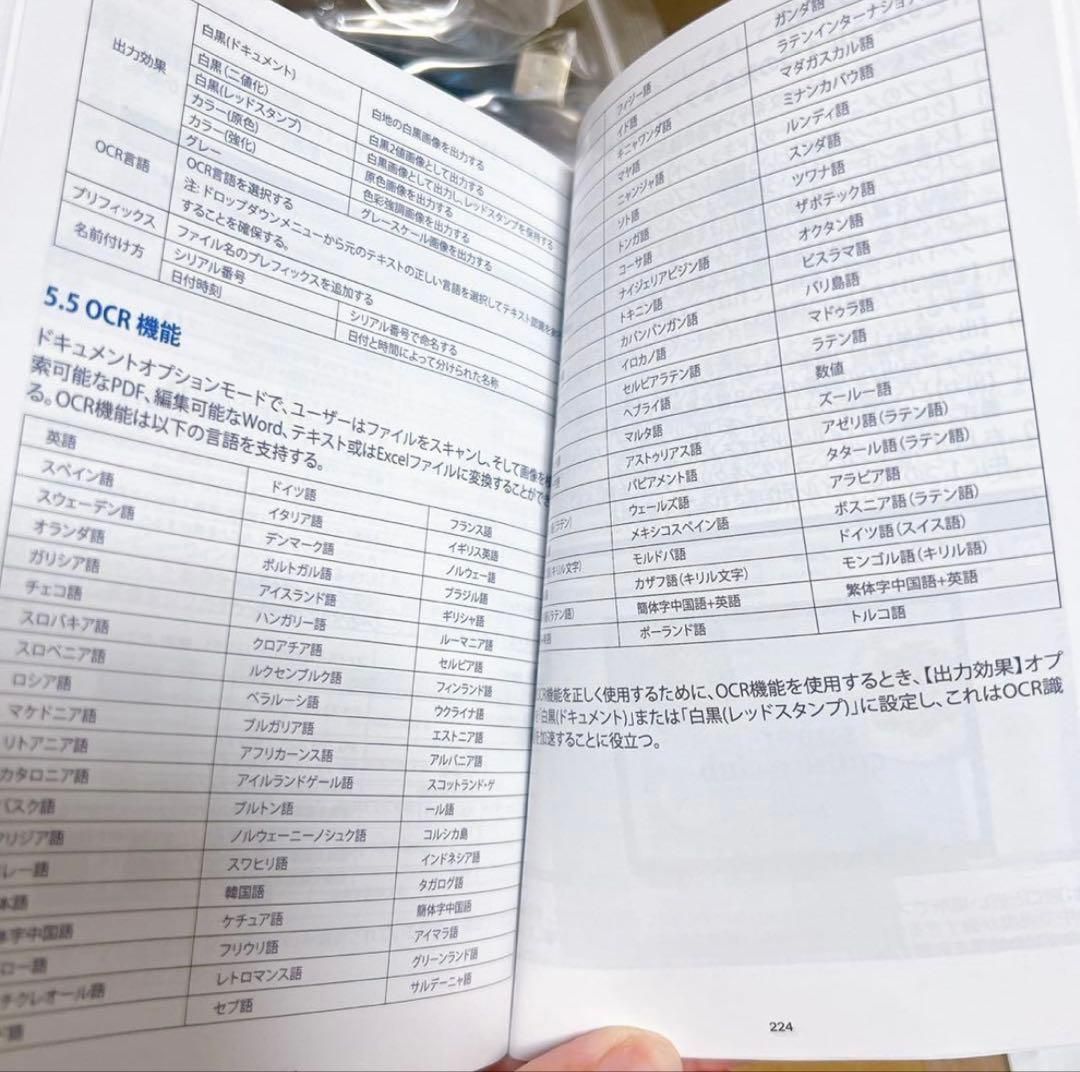 出力効果
白黒(ドキュメント)
白地の白黒画像を出力する
白黒(二値化)
白黒2値画像として出力する
白黒(レッドスタンプ)
白黒画像として出力し、レッドスタンプを保留する
カラー(原色)
原色画像を出力する
カラー(強化)
色彩強調画像を出力する
グレー
グレースケール画像を出力する
OCR言語
OCR言語を選択する
注:ドロップダウンメニューから元のテキストの正しい言語を選択してテキスト認識を
することを確保する。
プリフィックス
ファイル名のプレフィックスを追加する
名前付け方
シリアル番号
シリアル番号で命名する
日付時刻
日付と時間によって分けられた名称
5.5 OCR 機能
ドキュメントオプションモードで、ユーザーはファイルをスキャンし、そして画像を
索可能なPDF、編集可能なWord、テキスト或はExcelファイルに変換することができ
る。OCR機能は以下の言語を支持する。
英語 ドイツ語 フランス語
スペイン語 イタリア語 イギリス英語
スウェーデン語 デンマーク語 ノルウェー語
オランダ語 ポルトガル語 ブラジル語
ガリシア語 アイスランド語 ギリシャ語
チェコ語 ハンガリー語 ルーマニア語
スロバキア語 クロアチア語 セルビア語
スロベニア語 ルクセンブルク語 フィンランド語
ロシア語 ベラルーシ語 ウクライナ語
マケドニア語 ブルガリア語 エストニア語
リトアニア語 アフリカーンス語 アルバニア語
カタロニア語 アイルランドゲール語 スコットランド・ゲ
ール語
バスク語 ブルトン語 コルシカ島
ノルウェーニーノシュク語 インドネシア語
スワヒリ語 タガログ語
韓国語 簡体字中国語
体字中国語 ケチュア語 アイマラ語
フリウリ語 グリーンランド語
チクレオール語 レトロマンス語 サルデーニャ語
セブ語
ガンダ語
フィジー語 ラテンインターナショナ
イド語 マダガスカル語
キニャワンダ語 ミナンカバウ語
マヤ語 ルンディ語
ニャンジャ語 スンダ語
ソト語 ツワナ語
トンガ語 ザポテック語
コーサ語 オクタン語
ナイジェリアピジン語 ビスラマ語
トキニン語 バリ島語
カパンパンガン語 マドゥラ語
イロカノ語 ラテン語
セルビアラテン語 数値
ヘブライ語 ズールー語
マルタ語 アゼリ語(ラテン語)
アストゥリアス語 タタール語(ラテン語)
パピアメント語 アラビア語
ウェールズ語 ボスニア語(ラテン語)
メキシコスペイン語 ドイツ語(スイス語)
キリル文字) モルドバ語 モンゴル語(キリル語)
カザフ語(キリル文字) 繁体字中国語+英語
(ラテン語) 簡体字中国語+英語 トルコ語
ポーランド語
OCR機能を正しく使用するために、OCR機能を使用するとき、【出力効果】オプ
「白黒(ドキュメント)」または「白黒(レッドスタンプ)」に設定し、これはOCR識
を加速することに役立つ。
224